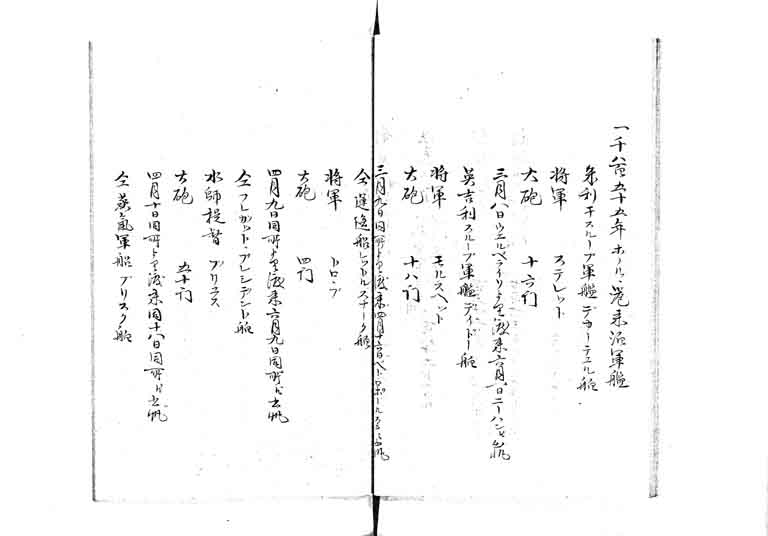 一千八百五十五年ホノルヽ港来泊軍艦
米利干スループ軍艦デカーテユル船
将軍 ステレット
大砲 十六門
三月八日ウエルパライソより渡来六月一日ニーハンセ出帆
英吉利スループ軍艦ディドー船
将軍 モルスヘット
大砲 十八門
三月九日同所より渡来四月十六日ペトロポールスニ出帆
仝運送船レットルスナーク船
将軍 トロプ
大砲 四門
四月九日同所より渡来六月九日同所に出帆
仝フレガット・プレシデント船
水師提督 ブリユス
大砲 五十門
四月十日同所より渡来同十八日同所に出帆
仝蒸気軍船ブリスク船